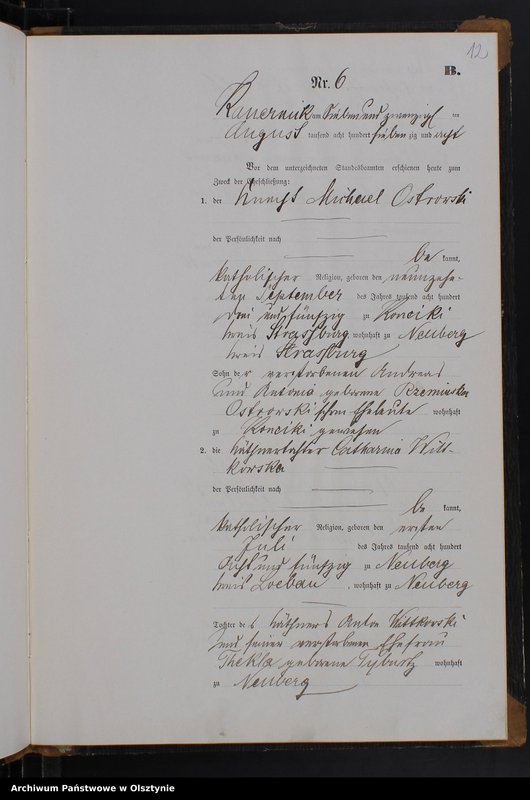 12
B.
Nr. 6
Kauernick am Sieben und zwanzigsten
August tausend acht hundert sieben zig und acht
Vor dem unterzeichneten Standesbeamten erschienen heute zum
Zweck der Eheschließung:
1. der Knecht Michael Ostrowski
der Persönlichkeit nach
be kannt,
katholischer Religion, geboren den neunzehn-
ten September des Jahres tausend acht hundert
drei und fünfzig zu Konciki
Kreis Strasburg, wohnhaft zu Neuberg
Kreis Strasburg
Sohn der verstorbenen Andreas
und Antonie geborene
Ostrowski'schen Eheleute wohnhaft
zu Konciki gewesen
2. die Käthnertochter Catharina Witt-
kowska
der Persönlichkeit nach
be kannt,
katholischer Religion, geboren den ersten
Juli des Jahres tausend acht hundert
acht und fünfzig zu Neuberg
Kreis Loebau, wohnhaft zu Neuberg
Tochter des Käthners Anton Wittkowski
und seiner verstorbenen Ehefrau
Thekla geborene
wohnhaft
zu Neuberg
Archiwum Państwowe w Olsztynie